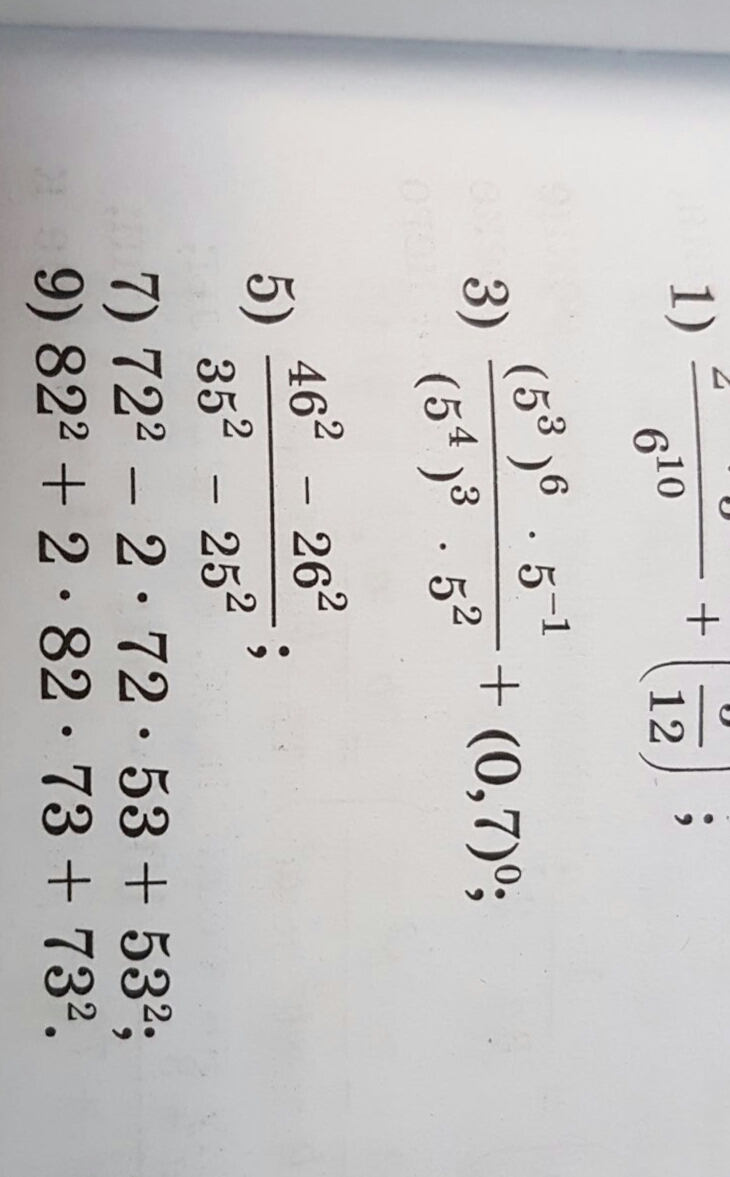 1) 6¹⁰ + ( 12 ) ;
3) (5³)⁶ · 5⁻¹ / (5⁴)³ · 5² + (0,7)⁰;
5) 46² − 26² / 35² − 25² ;
7) 72² − 2 · 72 · 53 + 53²;
9) 82² + 2 · 82 · 73 + 73².